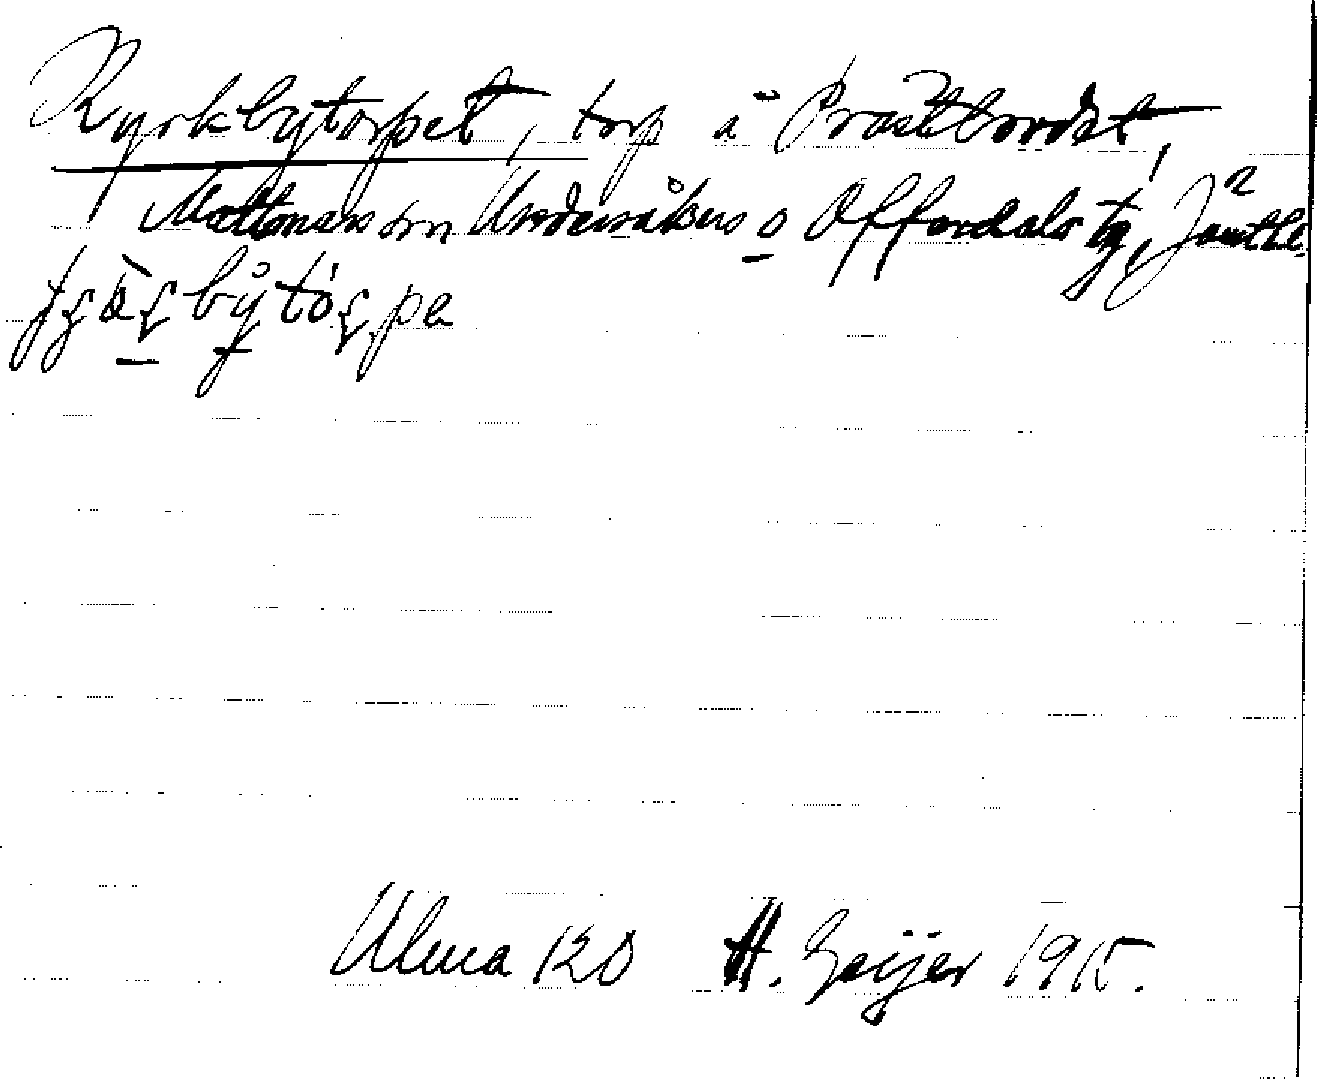 Kyrkbytorpet, torp å Prästbordet,
Mattmars sn Undersåkers o Offerdals tg, Jämtl.
Alma 120 H. Geijer 1915.